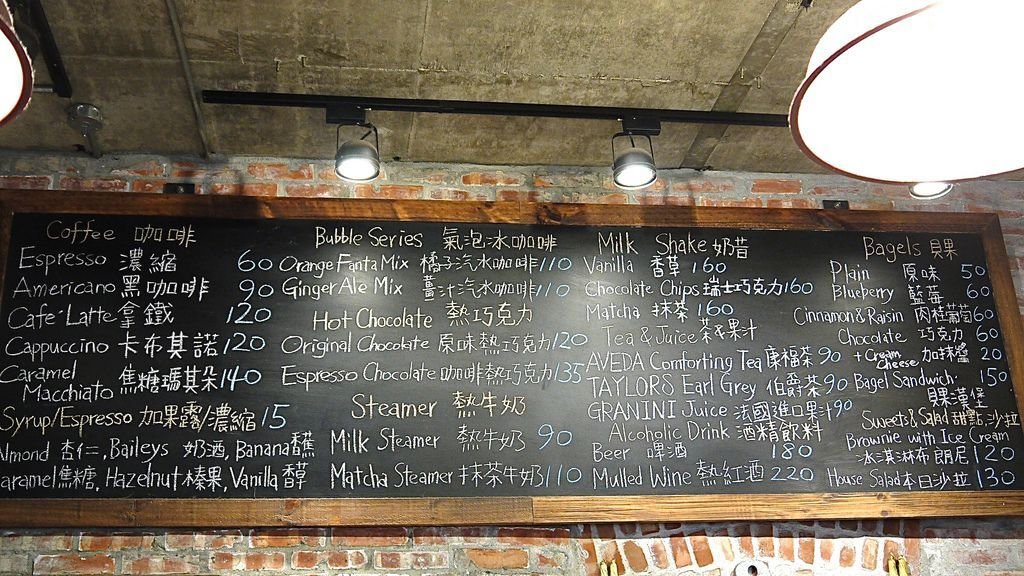 Coffee 咖啡
Espresso 濃縮 60
Americano 黑咖啡 90
Cafe' Latte 拿鐵 120
Cappuccino 卡布其諾 120
Caramel
Macchiato 焦糖瑪其朵 140
Syrup/Espresso 加果露/濃縮 15
Almond 杏仁, Baileys 奶酒, Banana香蕉
Caramel焦糖, Hazelnut榛果, Vanilla 香草
Bubble Series 氣泡冰咖啡
Orange Fanta Mix 橘子汽水咖啡 110
Ginger Ale Mix 薑汁汽水咖啡 110
Hot Chocolate 熱巧克力
Original Chocolate 原味熱巧克力 120
Espresso Chocolate 咖啡熱巧克力 135
Steamer 熱牛奶
Milk Steamer 熱牛奶 90
Matcha Steamer 抹茶牛奶 110
Milk Shake 奶昔
Vanilla 香草 160
Chocolate Chips 瑞士巧克力 160
Matcha 抹茶 160
Tea & Juice 茶&果汁
AVEDA Comforting Tea 康福茶 90
TAYLORS Earl Grey 伯爵茶 90
GRANINI Juice 法國進口果汁 90
Alcoholic Drink 酒精飲料
Beer 啤酒 180
Mulled Wine 熱紅酒 220
Bagels 貝果
Plain 原味 50
Blueberry 藍莓 60
Cinnamon & Raisin 肉桂葡萄 60
Chocolate 巧克力 60
+ Cream
Cheese 加抹醬 20
Bagel Sandwich 150
貝果漢堡
Sweets & Salad 甜點.沙拉
Brownie with Ice Cream
冰淇淋布朗尼 120
House Salad 本日沙拉 130